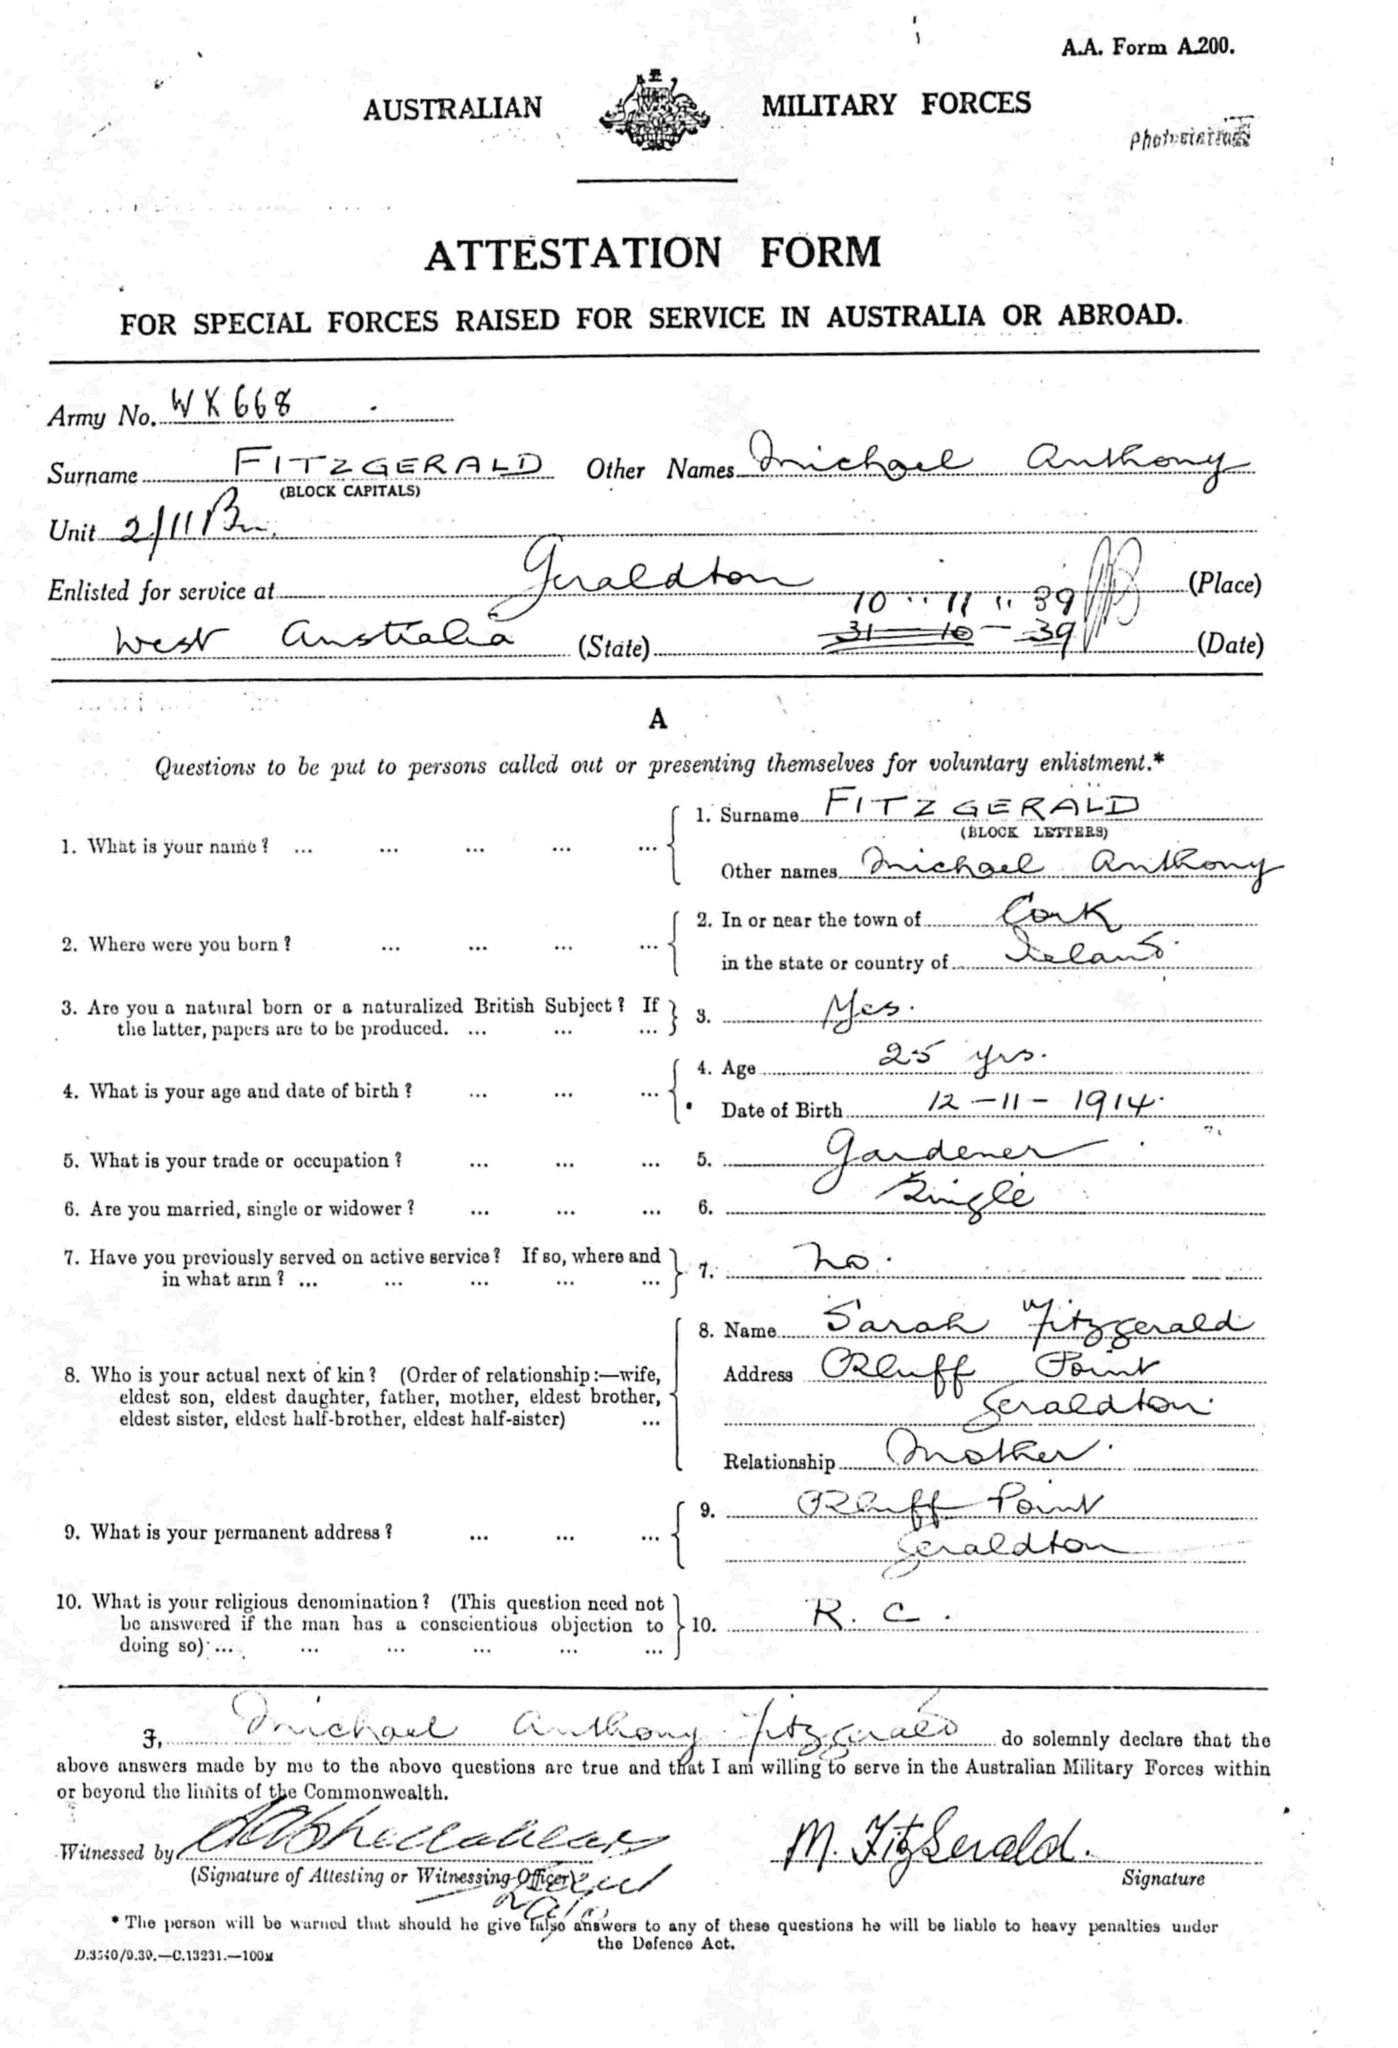 A.A. Form A.200.
AUSTRALIAN MILITARY FORCES
ATTESTATION FORM
FOR SPECIAL FORCES RAISED FOR SERVICE IN AUSTRALIA OR ABROAD.
Army No. WX668
Surname FITZGERALD Other Names Michael Anthony
(BLOCK CAPITALS)
Unit 2/11 Bn.
Enlisted for service at Geraldton (Place)
10 " 11 " 39
West Australia (State) 31-10-39 (Date)
A
Questions to be put to persons called out or presenting themselves for voluntary enlistment.*
1. What is your name? ... ... ... ... ... 1. Surname FITZGERALD
(BLOCK LETTERS)
Other names Michael Anthony
2. Where were you born? ... ... ... ... 2. In or near the town of Cork
in the state or country of Ireland
3. Are you a natural born or a naturalized British Subject? If 3. Yes.
the latter, papers are to be produced. ... ... ...
4. What is your age and date of birth? ... ... ... 4. Age 25 yrs.
Date of Birth 12-11-1914.
5. What is your trade or occupation? ... ... ... 5. Gardener
6. Are you married, single or widower? ... ... ... 6. Single
7. Have you previously served on active service? If so, where and 7. No.
in what arm? ... ... ... ... ...
8. Name Sarah Fitzgerald
8. Who is your actual next of kin? (Order of relationship:—wife, Address Bluff Point
eldest son, eldest daughter, father, mother, eldest brother,
eldest sister, eldest half-brother, eldest half-sister) ... Geraldton.
Relationship Mother.
9. What is your permanent address? ... ... ... 9. Bluff Point
Geraldton
10. What is your religious denomination? (This question need not
be answered if the man has a conscientious objection to 10. R. C.
doing so) ... ... ... ... ... ...
I, Michael Anthony Fitzgerald do solemnly declare that the
above answers made by me to the above questions are true and that I am willing to serve in the Australian Military Forces within
or beyond the limits of the Commonwealth.
Witnessed by M. FitzGerald.
(Signature of Attesting or Witnessing Officer) Signature
* The person will be warned that should he give false answers to any of these questions he will be liable to heavy penalties under
the Defence Act.
D.3540/9.39.—C.13231.—100M